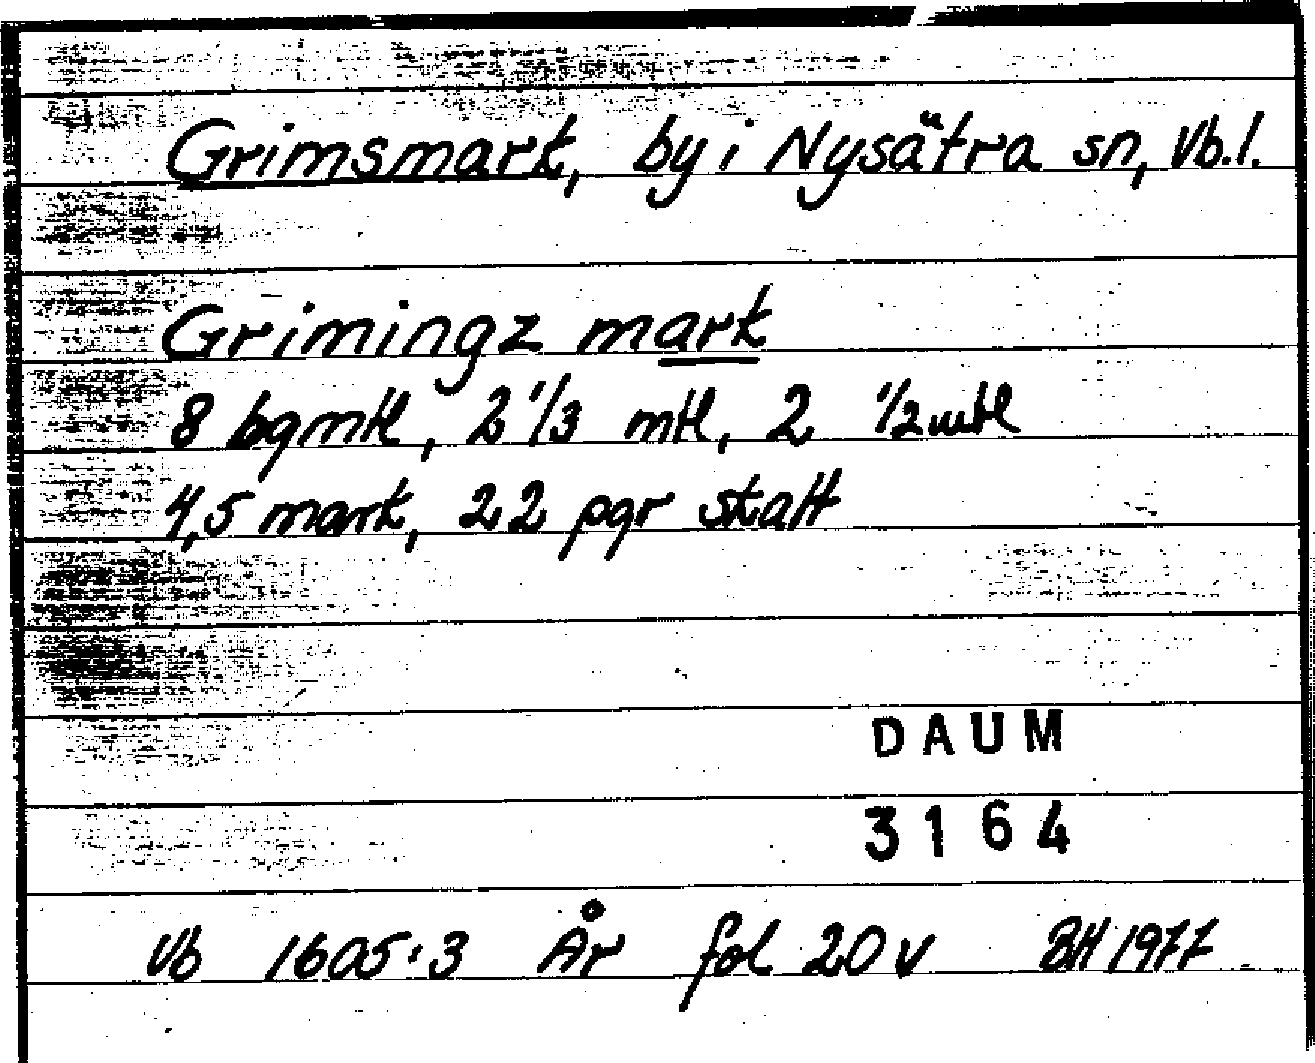 Grimsmark, by i Nysätra sn, Vb.l.
Grimingz mark
8 bgmtl, 2 1/3 mtl, 2 1/2 mtl
4,5 mark, 22 pgr skatt
DAUM
3164
Vb 1605:3 År fol 20 v BH 1977